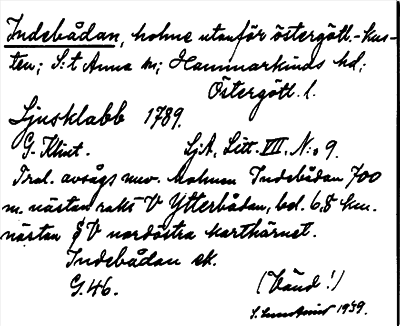 Indebådan, holme utanför östergött.-kus-
ten; S:t Anna sn; Hammarkinds hd;
Östergötl. l.
Ljusklabb 1789.
G. Klint. SjA, Litt. VII. N:o 9.
Trol. avsågs nuv. holmen Indebådan 700
m. nästan rakt V Ytterbådan, bel. 6,8 km.
nästan V nordöstra karthörnet.
Indebådan ek.
G.46. (Vänd!)
1939.